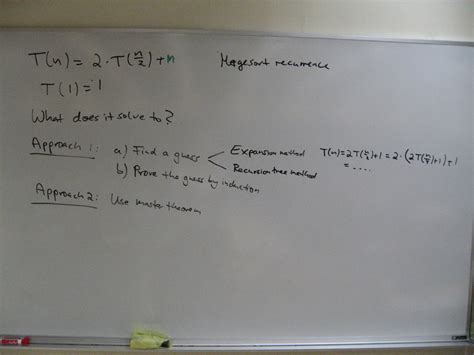 T(n) = 2·T(n/2) + n   Mergesort recurrence
T(1) = 1
What does it solve to?
Approach 1: a) Find a guess < Expansion method   T(n)=2T(n/2)+1 = 2·(2T(n/4)+1)+1
Recursion tree method   = ....
b) Prove the guess by induction
Approach 2: Use master theorem